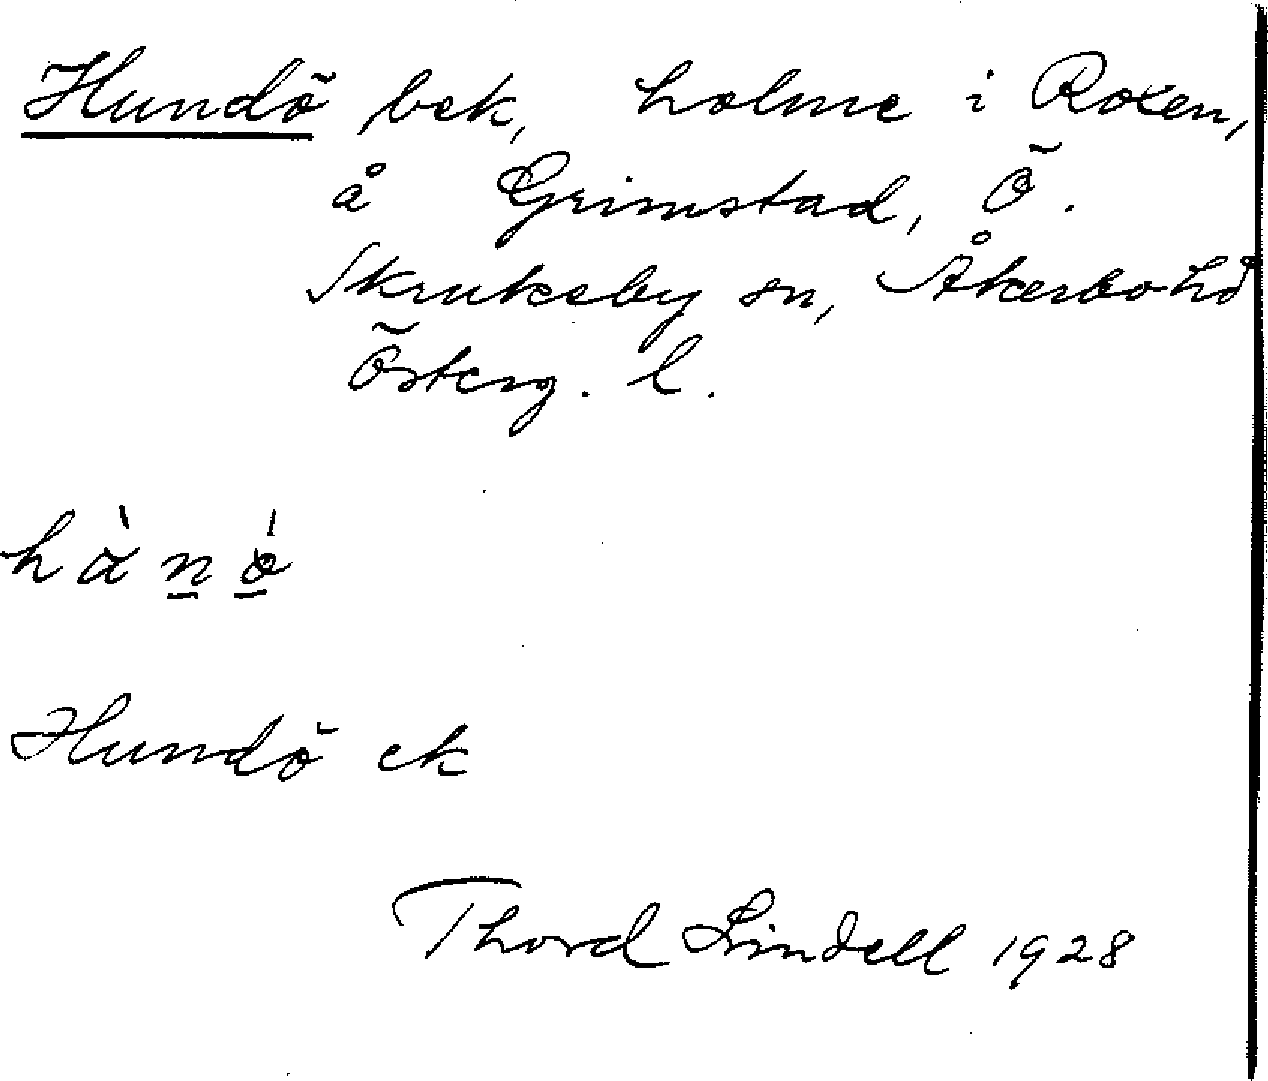 Hundö bek, holme i Roxen,
å Grimstad, Ö.
Skrukeby sn, Åkerbo hd
Österg. l.
hànö́
Hundö ek
Thord Lindell 1928